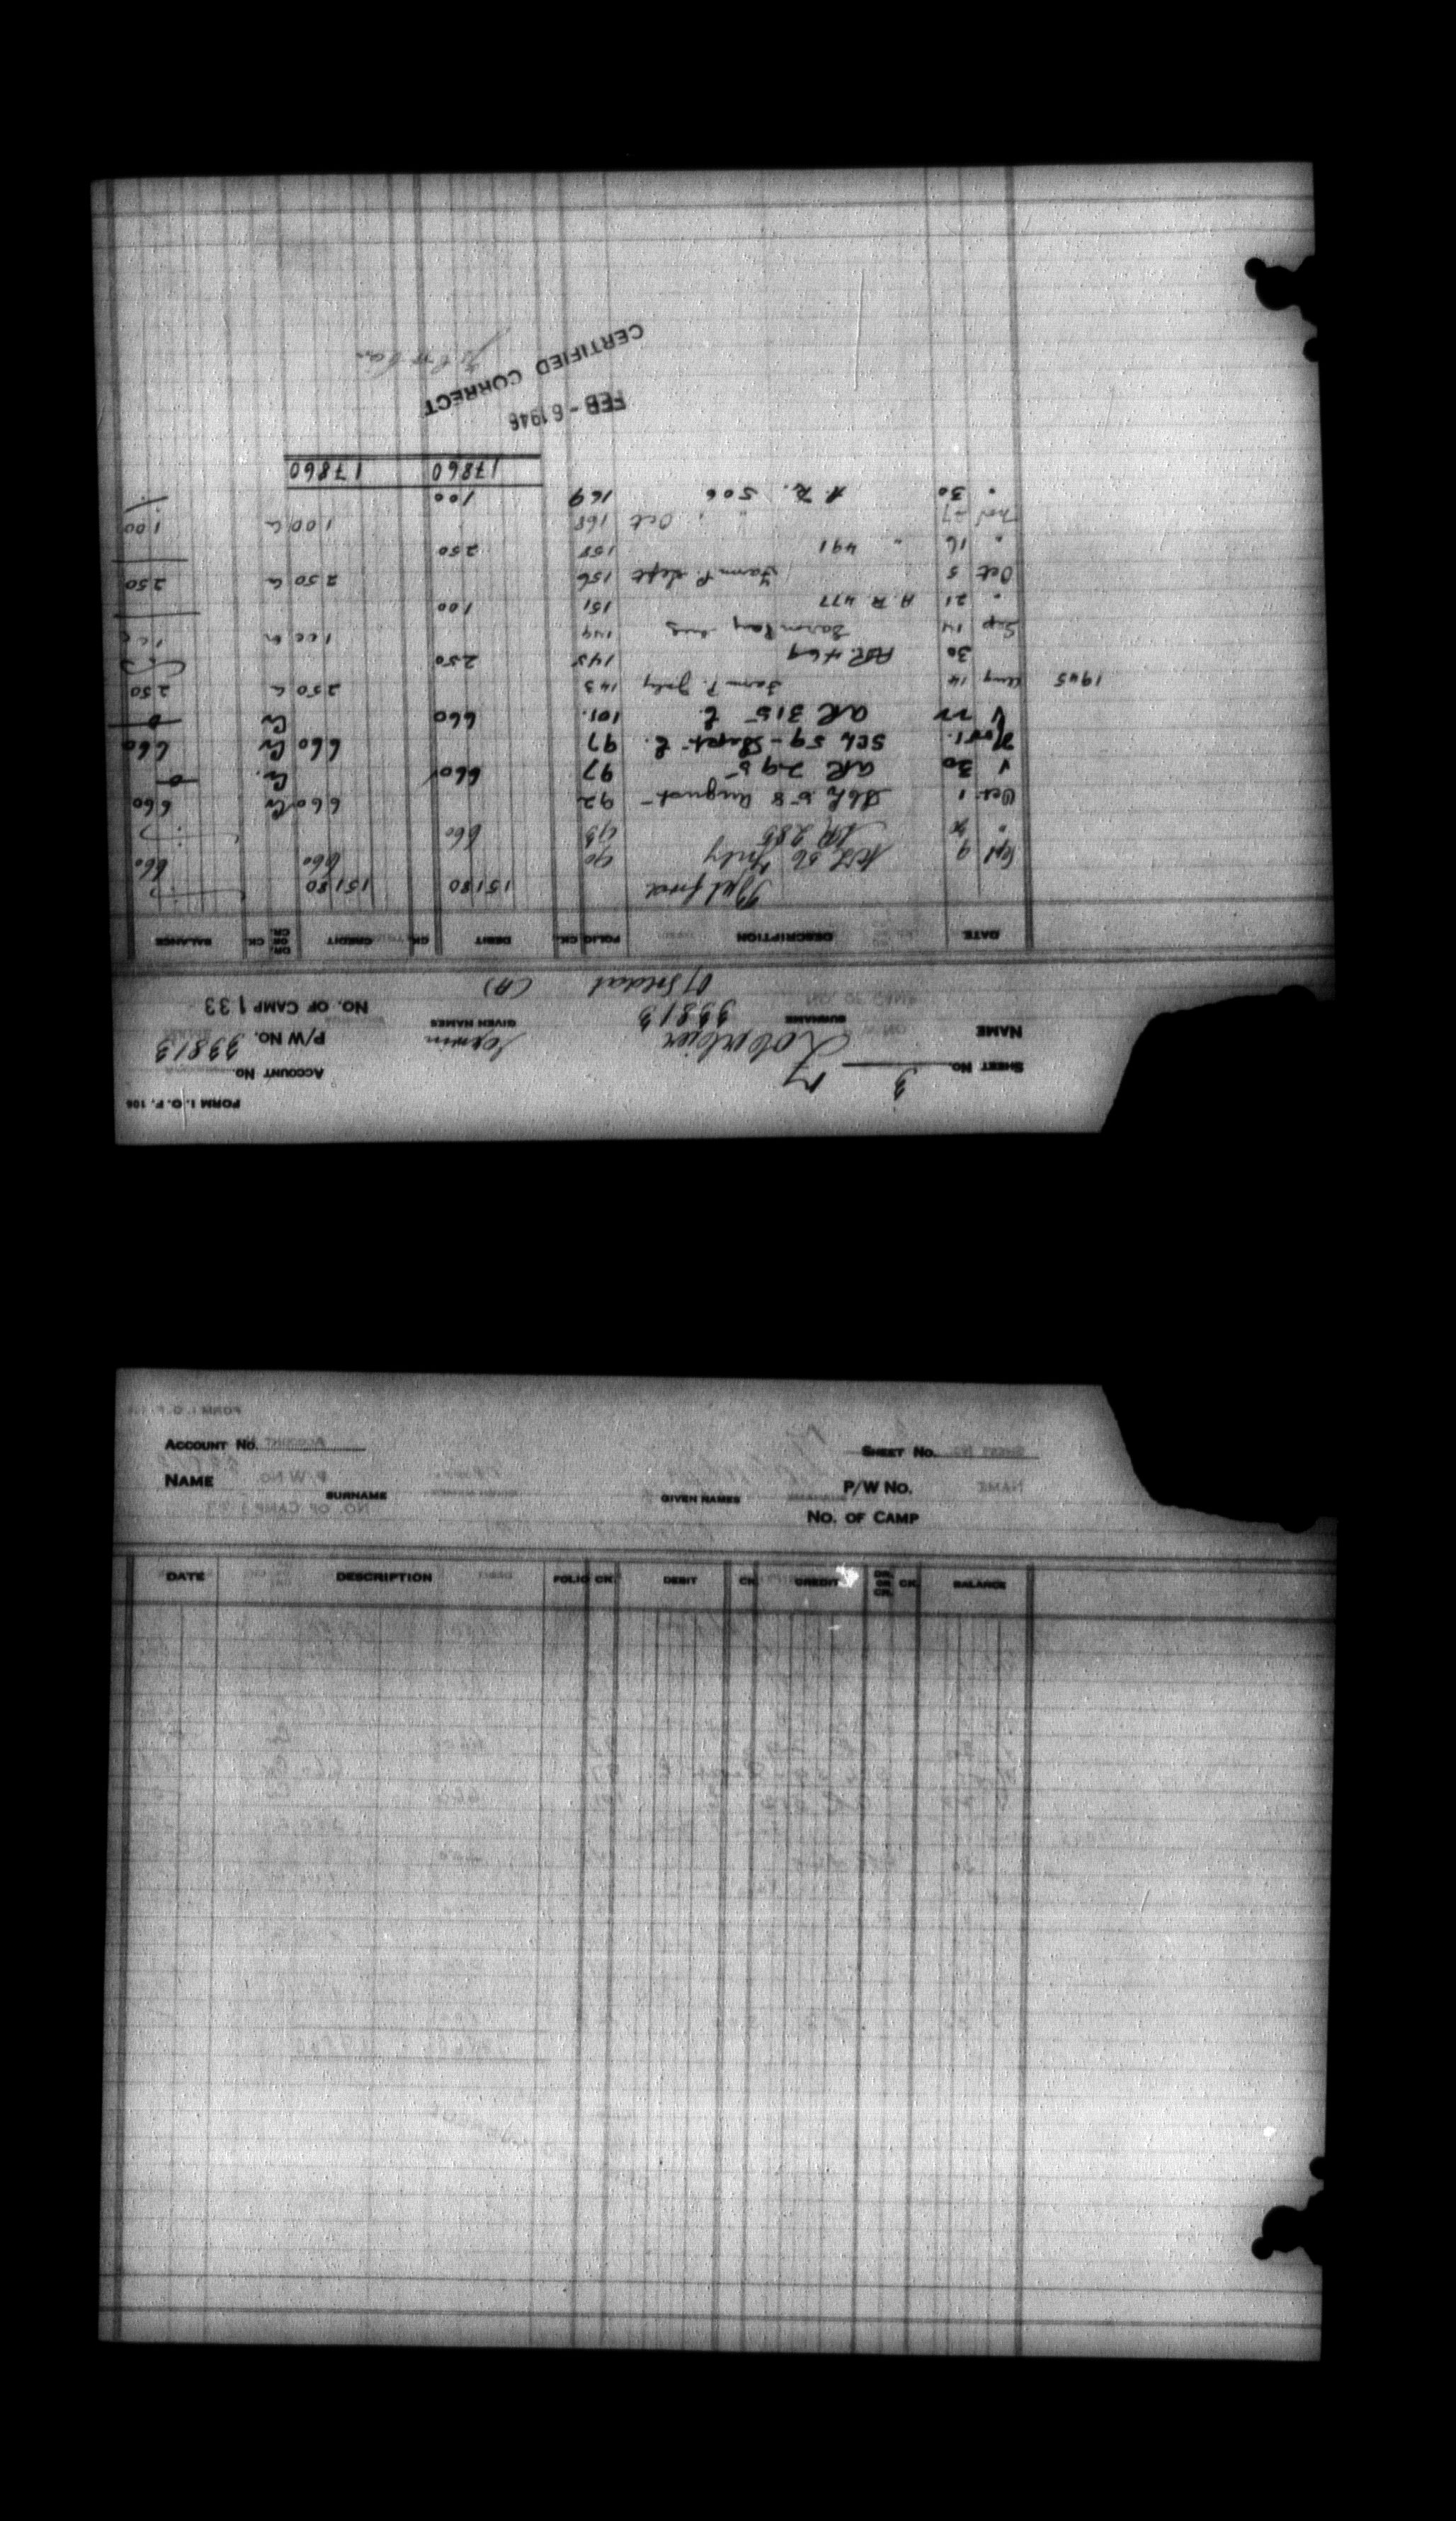 FORM I. O. F. 106
SHEET No. 3 ACCOUNT No.
NAME Erwin P/W No. 33813
SURNAME GIVEN NAMES
33813 No. OF CAMP 133
O/Soldat (A)
DATE DESCRIPTION FOLIO CK. DEBIT CK. CREDIT DR. OR CR. CK. BALANCE
Bal fwd 15180 15180
Sept 9 56 July 90 660 660
" 285 93 660
Oct 1 Sch 58 August 92 660 Cr 660
" 30 AR 295 97 660 Cr. 0
Nov 1. Sch 59 - Sept E. 97 660 Cr 660
" 22 AR 315 E. 101. 660 Cr 0
1945 Aug 14 Farm P. July 143 250 Cr 250
30 AR. 469 145 250
Sep 14 Farm Pay Aug 149 100 Cr 100
" 21 A.R. 477 151 100
Oct 5 Farm P. Sept 156 250 Cr 250
" 16 " 491 158 250
Nov 27 " " Oct 168 100 Cr 100
" 30 A. R. 506 169 100
17860 17860
FEB - 6 1946
CERTIFIED CORRECT
ACCOUNT No. SHEET No.
NAME P/W No.
SURNAME GIVEN NAMES
No. OF CAMP
DATE DESCRIPTION FOLIO CK. DEBIT CK. CREDIT DR. OR CR. CK. BALANCE